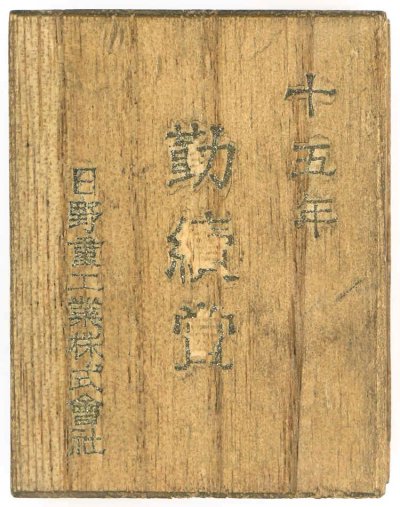 十五年
勤續賞
日野重工業株式會社